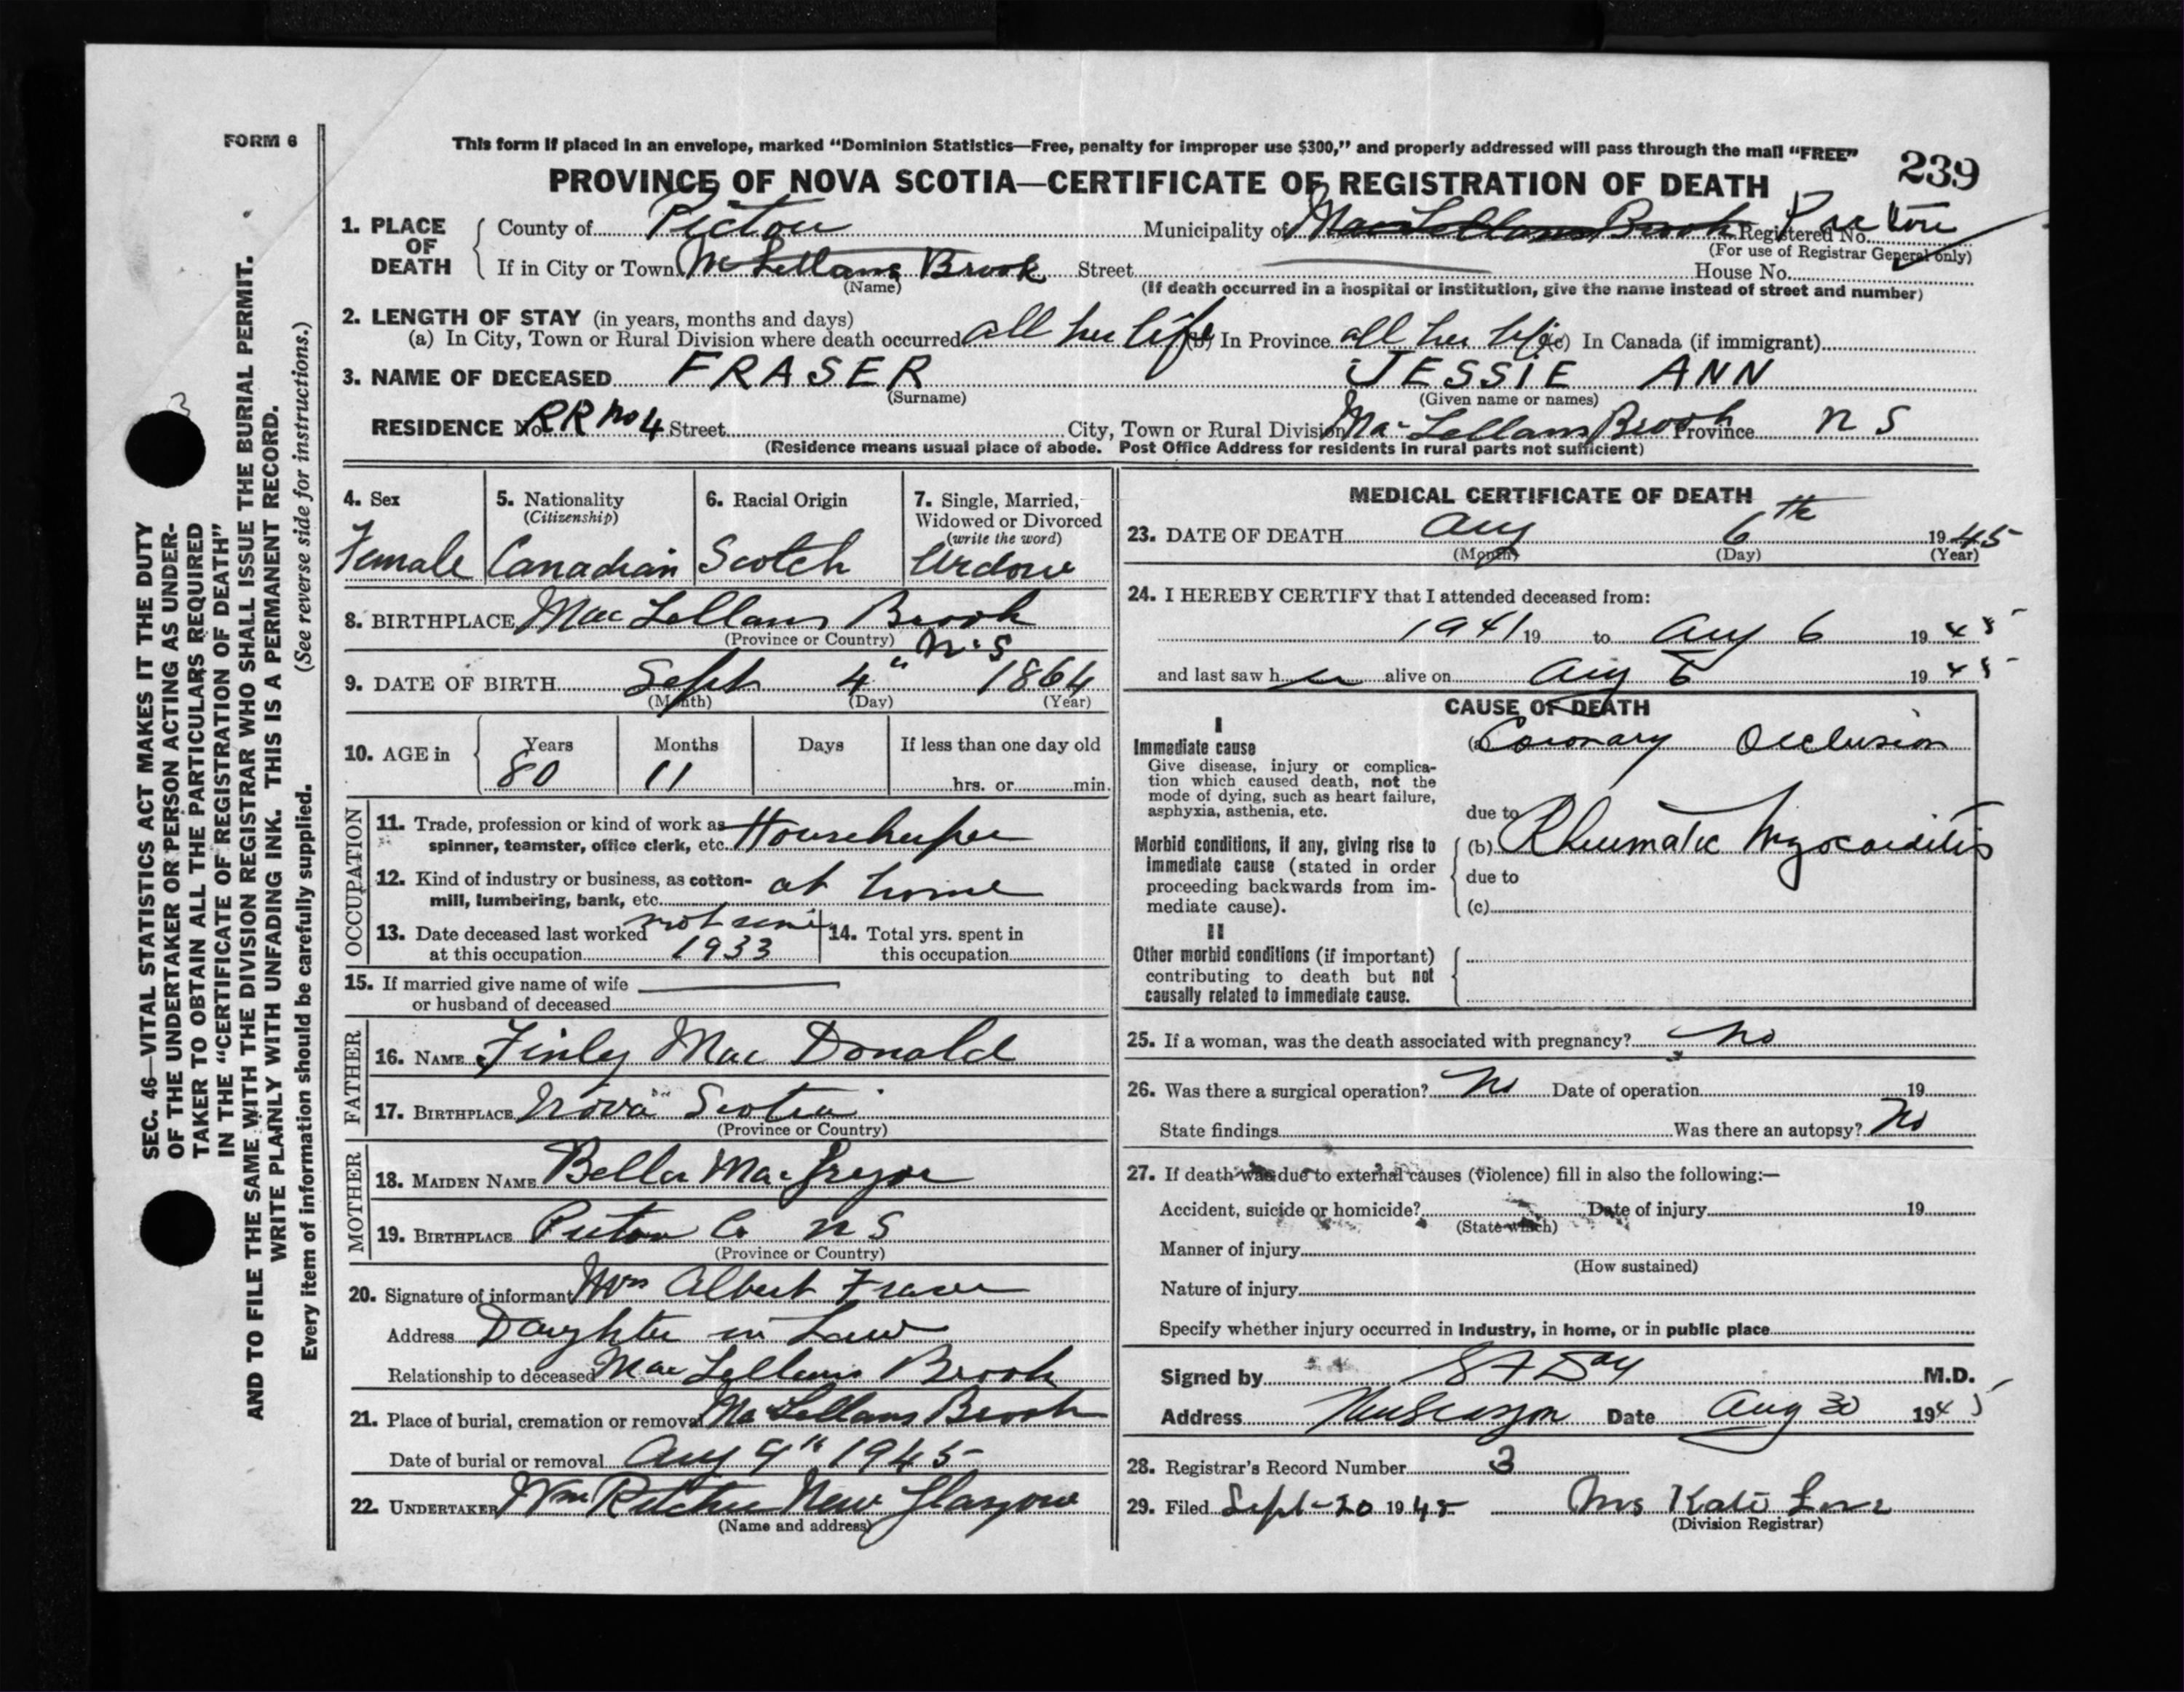 FORM 6
This form if placed in an envelope, marked "Dominion Statistics—Free, penalty for improper use $300," and properly addressed will pass through the mail "FREE"
239
PROVINCE OF NOVA SCOTIA—CERTIFICATE OF REGISTRATION OF DEATH
1. PLACE OF DEATH
County of Pictou Municipality of MacLellans Brook Pictou Registered No.
(For use of Registrar General only)
If in City or Town McLellans Brook Street House No.
(Name)
(If death occurred in a hospital or institution, give the name instead of street and number)
2. LENGTH OF STAY (in years, months and days)
(a) In City, Town or Rural Division where death occurred all her life (b) In Province all her life (c) In Canada (if immigrant)
3. NAME OF DECEASED FRASER JESSIE ANN
(Surname) (Given name or names)
RESIDENCE No. RR No 4 Street City, Town or Rural Division MacLellans Brook Province N S
(Residence means usual place of abode. Post Office Address for residents in rural parts not sufficient)
4. Sex
Female
5. Nationality
(Citizenship)
Canadian
6. Racial Origin
Scotch
7. Single, Married,
Widowed or Divorced
(write the word)
Widow
8. BIRTHPLACE MacLellans Brook
(Province or Country) N.S
9. DATE OF BIRTH Sept 4" 1864
(Month) (Day) (Year)
10. AGE in
Years Months Days If less than one day old
80 11 hrs. or min.
OCCUPATION
11. Trade, profession or kind of work as
spinner, teamster, office clerk, etc. Housekeeper
12. Kind of industry or business, as cotton-
mill, lumbering, bank, etc. at home
13. Date deceased last worked not since
at this occupation 1933
14. Total yrs. spent in
this occupation
15. If married give name of wife
or husband of deceased
FATHER
16. NAME Finly Mac Donald
17. BIRTHPLACE Nova Scotia
(Province or Country)
MOTHER
18. MAIDEN NAME Bella MacGregor
19. BIRTHPLACE Pictou Co N S
(Province or Country)
20. Signature of informant Mrs Albert Fraser
Address Daughter in Law
Relationship to deceased MacLellans Brook
21. Place of burial, cremation or removal MacLellans Brook
Date of burial or removal Aug 9th 1945
22. UNDERTAKER Wm Ritchie New Glasgow
(Name and address)
MEDICAL CERTIFICATE OF DEATH
23. DATE OF DEATH Aug 6th 1945
(Month) (Day) (Year)
24. I HEREBY CERTIFY that I attended deceased from:
1941 19 to Aug 6 1945
and last saw h er alive on Aug 6 1945
CAUSE OF DEATH
I
Immediate cause
Give disease, injury or complica-
tion which caused death, not the
mode of dying, such as heart failure,
asphyxia, asthenia, etc.
(a) Coronary Occlusion
due to
Morbid conditions, if any, giving rise to
immediate cause (stated in order
proceeding backwards from im-
mediate cause).
(b) Rheumatic Myocarditis
due to
(c)
II
Other morbid conditions (if important)
contributing to death but not
causally related to immediate cause.
25. If a woman, was the death associated with pregnancy? No
26. Was there a surgical operation? No Date of operation 19
State findings Was there an autopsy? No
27. If death was due to external causes (violence) fill in also the following:—
Accident, suicide or homicide? Date of injury 19
(State which)
Manner of injury
(How sustained)
Nature of injury
Specify whether injury occurred in industry, in home, or in public place
Signed by S F Day M.D.
Address New Glasgow Date Aug 30 1945
28. Registrar's Record Number 3
29. Filed Sept 20 1945 Mrs Kate
(Division Registrar)
SEC. 46—VITAL STATISTICS ACT MAKES IT THE DUTY
OF THE UNDERTAKER OR PERSON ACTING AS UNDER-
TAKER TO OBTAIN ALL THE PARTICULARS REQUIRED
IN THE "CERTIFICATE OF REGISTRATION OF DEATH"
AND TO FILE THE SAME WITH THE DIVISION REGISTRAR WHO SHALL ISSUE THE BURIAL PERMIT.
WRITE PLAINLY WITH UNFADING INK. THIS IS A PERMANENT RECORD.
Every item of information should be carefully supplied. (See reverse side for instructions.)
3